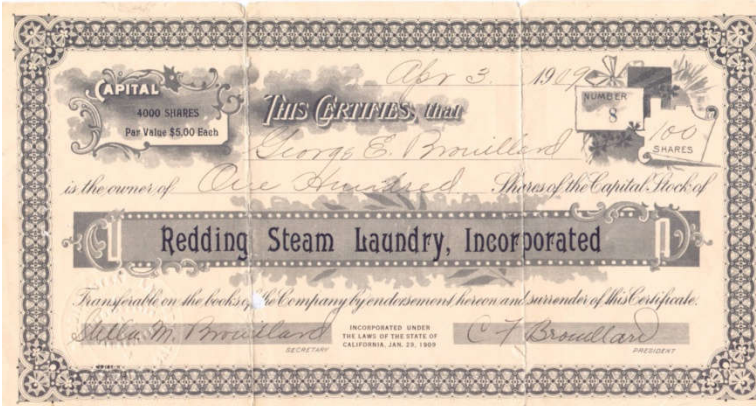 Apr 3. 1909
CAPITAL
4000 SHARES
Par Value $5.00 Each
THIS CERTIFIES, that
NUMBER
8
100
SHARES
George E. Brouillard
is the owner of One Hundred Shares of the Capital Stock of
Redding Steam Laundry, Incorporated
Transferable on the books of the Company by endorsement hereon and surrender of this Certificate.
Stella M. Brouillard
SECRETARY
INCORPORATED UNDER
THE LAWS OF THE STATE OF
CALIFORNIA, JAN. 25, 1909
C F Brouillard
PRESIDENT